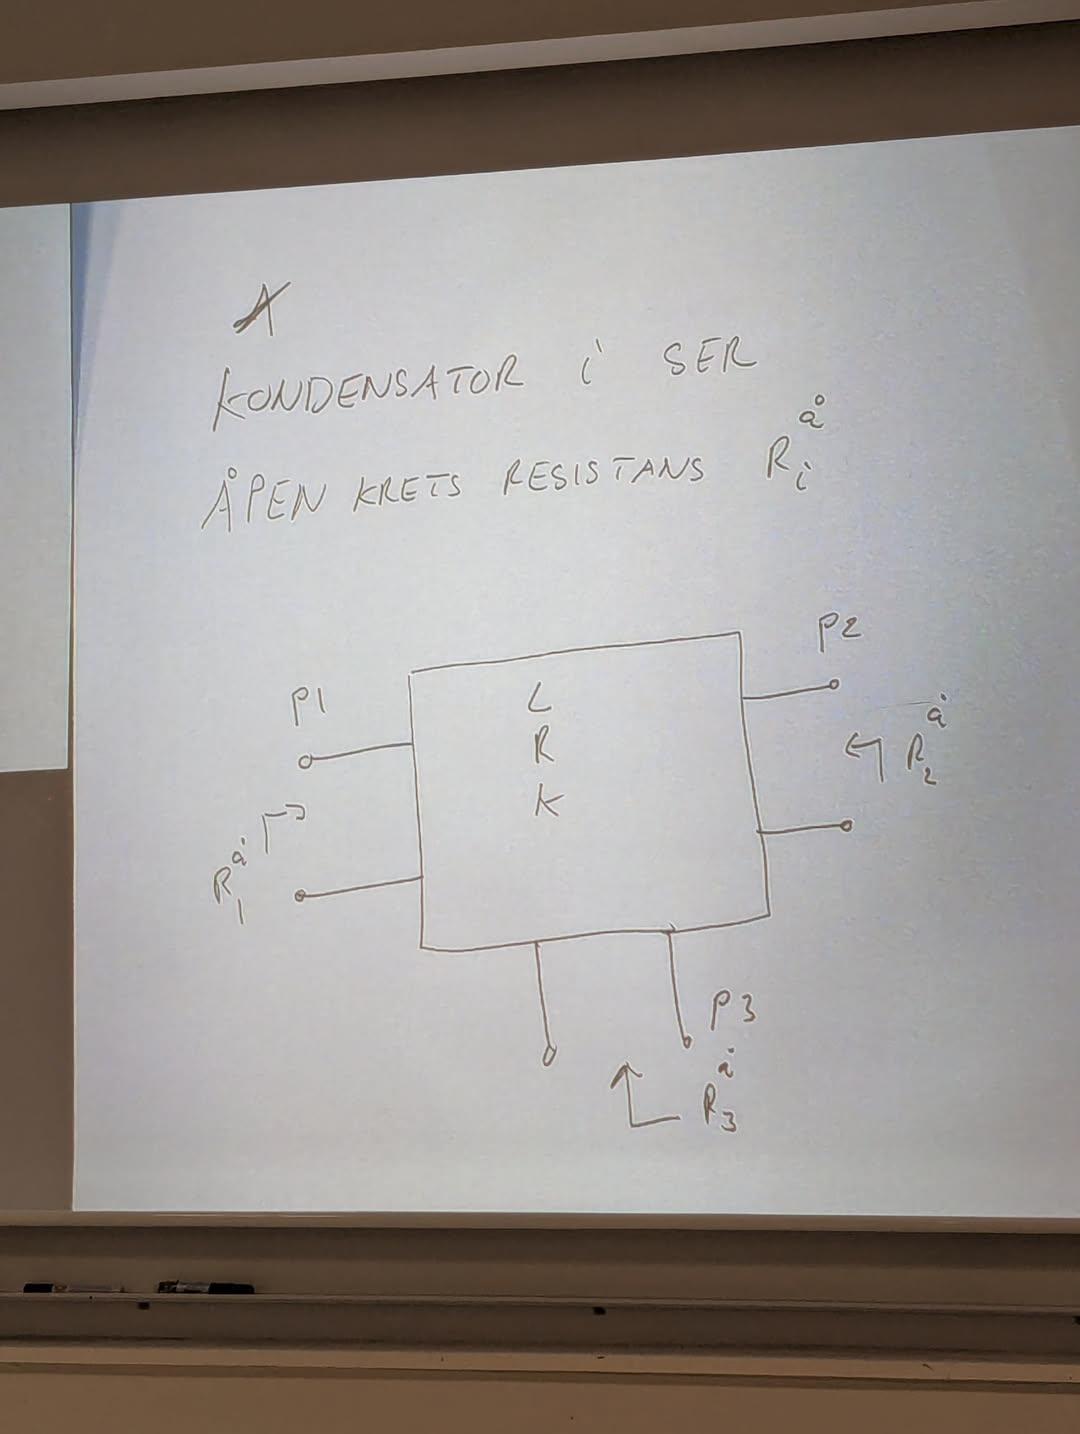 KONDENSATOR i SER
ÅPEN KRETS RESISTANS Rᵢå
P1
L
R
K
P2
R₂å
R₁å
P3
R₃å